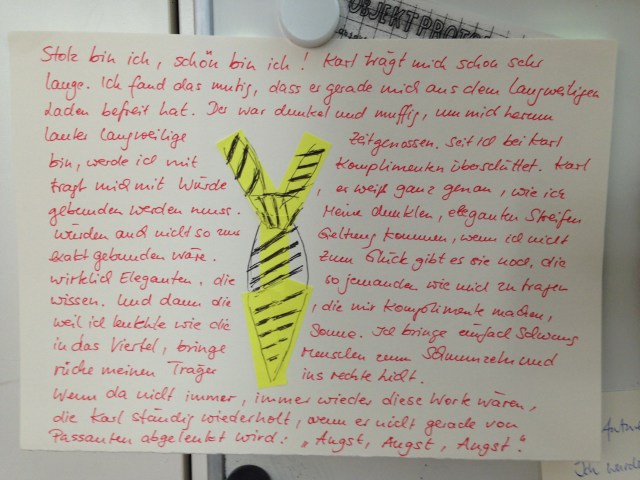 OBJEKT PROTO
Stolz bin ich, schön bin ich! Karl trägt mich schon sehr
lange. Ich fand das mutig, dass er gerade mich aus dem langweiligen
Laden befreit hat. Der war dunkel und muffig, um mich herum
lauter langweilige Zeitgenossen. Seit ich bei Karl
bin, werde ich mit Komplimenten überschüttet. Karl
trägt mich mit Würde, er weiß ganz genau, wie ich
gebunden werden muss. Meine dunklen, eleganten Streifen
würden auch nicht so zur Geltung kommen, wenn ich nicht
exakt gebunden wäre. Zum Glück gibt es sie noch, die
wirklich Eleganten, die so jemanden wie mich zu tragen
wissen. Und dann die, die mir Komplimente machen,
weil ich leuchte wie die Sonne. Ich bringe einfach Schwung
in das Viertel, bringe Menschen zum Schmunzeln und
rücke meinen Träger ins rechte Licht.
Wenn da nicht immer, immer wieder diese Worte wären,
die Karl ständig wiederholt, wenn er nicht gerade von
Passanten abgelenkt wird: „Angst, Angst, Angst".
Ich wurde